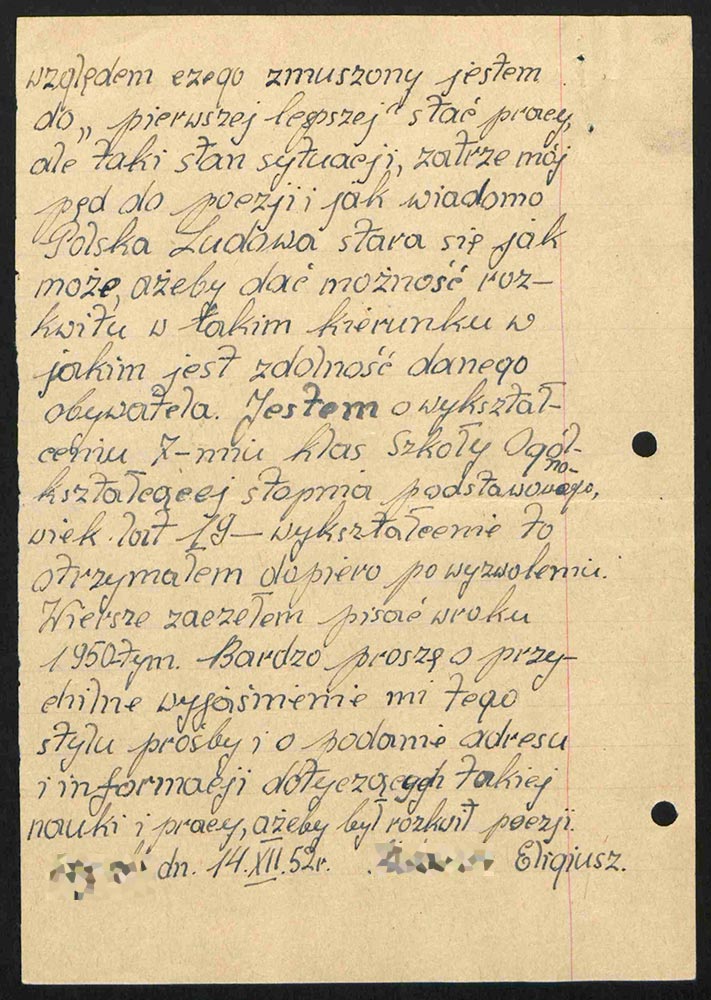 względem czego zmuszony jestem
do „pierwszej lepszej" stać pracy,
ale taki stan sytuacji, zatrze mój
pęd do poezji i jak wiadomo
Polska Ludowa stara się jak
może, ażeby dać możność roz-
kwitu w takim kierunku w
jakim jest zdolność danego
obywatela. Jestem o wykształ-
ceniu 7-miu klas Szkoły Ogól-
no-
kształcącej stopnia podstawowego,
wiek lat 19 – wykształcenie to
otrzymałem dopiero po wyzwoleniu.
Wiersze zaczełem pisać w roku
1950tym. Bardzo proszę o przy-
chilne wyjaśnienie mi tego
stylu prośby i o podanie adresu
i informacji dotyczących takiej
nauki i pracy, ażeby był rozkwit poezji.
dn. 14.XII.52r. Eligiusz.